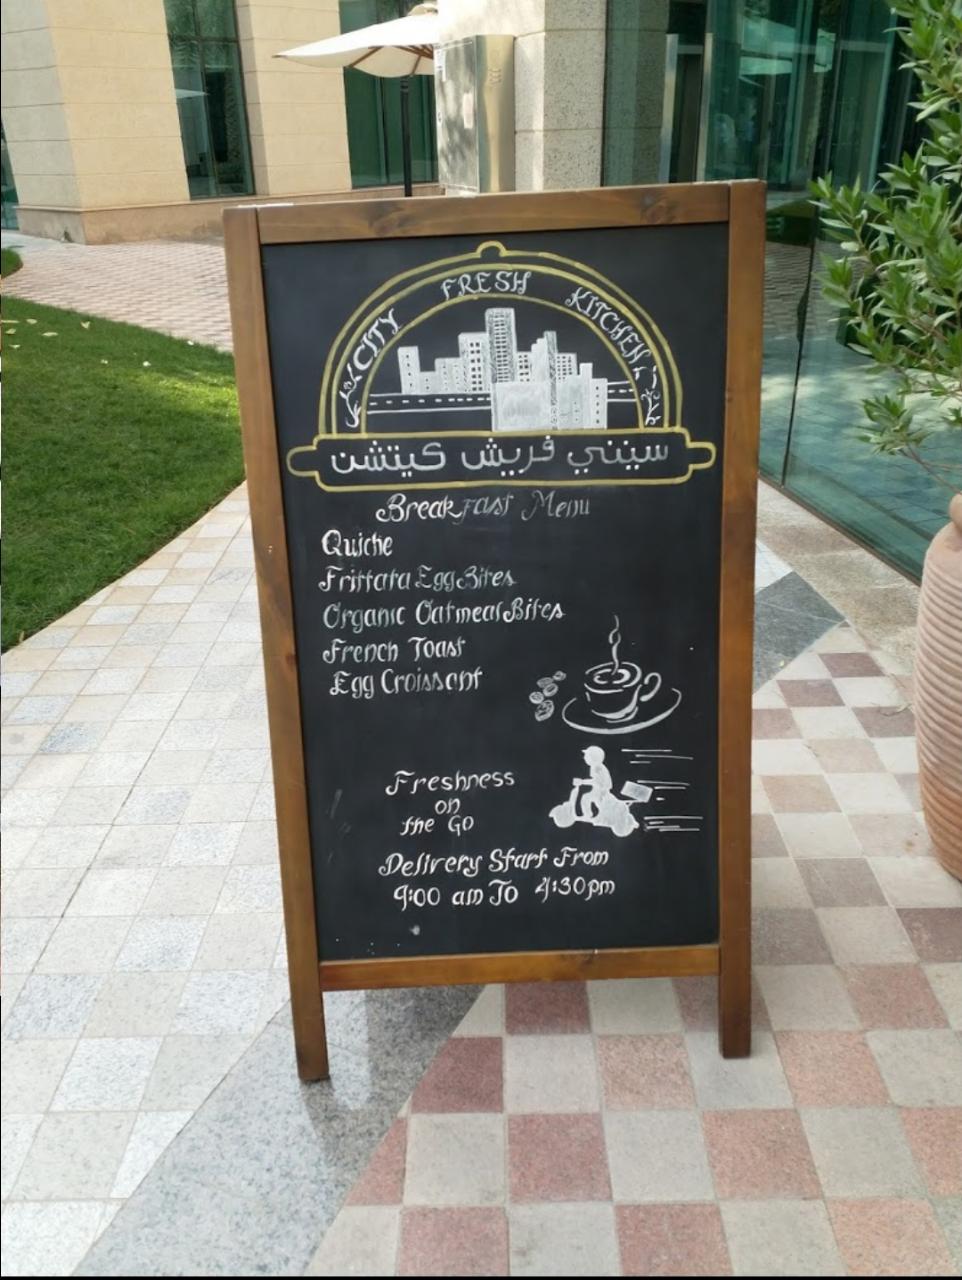 CITY FRESH KITCHEN
سيتي فريش كيتشن
Breakfast Menu
Quiche
Frittata Egg Bites
Organic Oatmeal Bites
French Toast
Egg Croissant
Freshness
on
the Go
Delivery Start From
9:00 am To 4:30pm